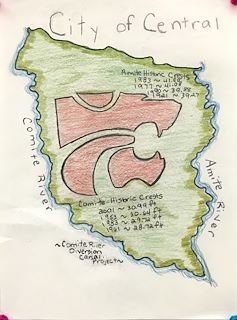 City of Central
Amite Historic Crests
1983 ~ 41.50
1977 ~ 41.08
1990 ~ 39.88
1921 ~ 39.27
Comite River
Amite River
Comite-Historic Crests
2001 ~ 30.99 ft
1953 ~ 30.64 ft
1983 ~ 29.72 ft
1961 ~ 28.72 ft
~Comite River
Diversion
Canal
Project~